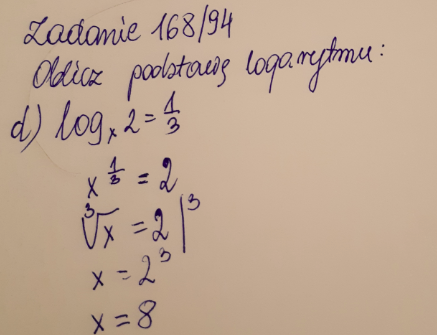 Zadanie 168/94
Oblicz podstawę logarytmu:
d) logₓ 2 = 1/3
x^(1/3) = 2
∛x = 2 |³
x = 2³
x = 8